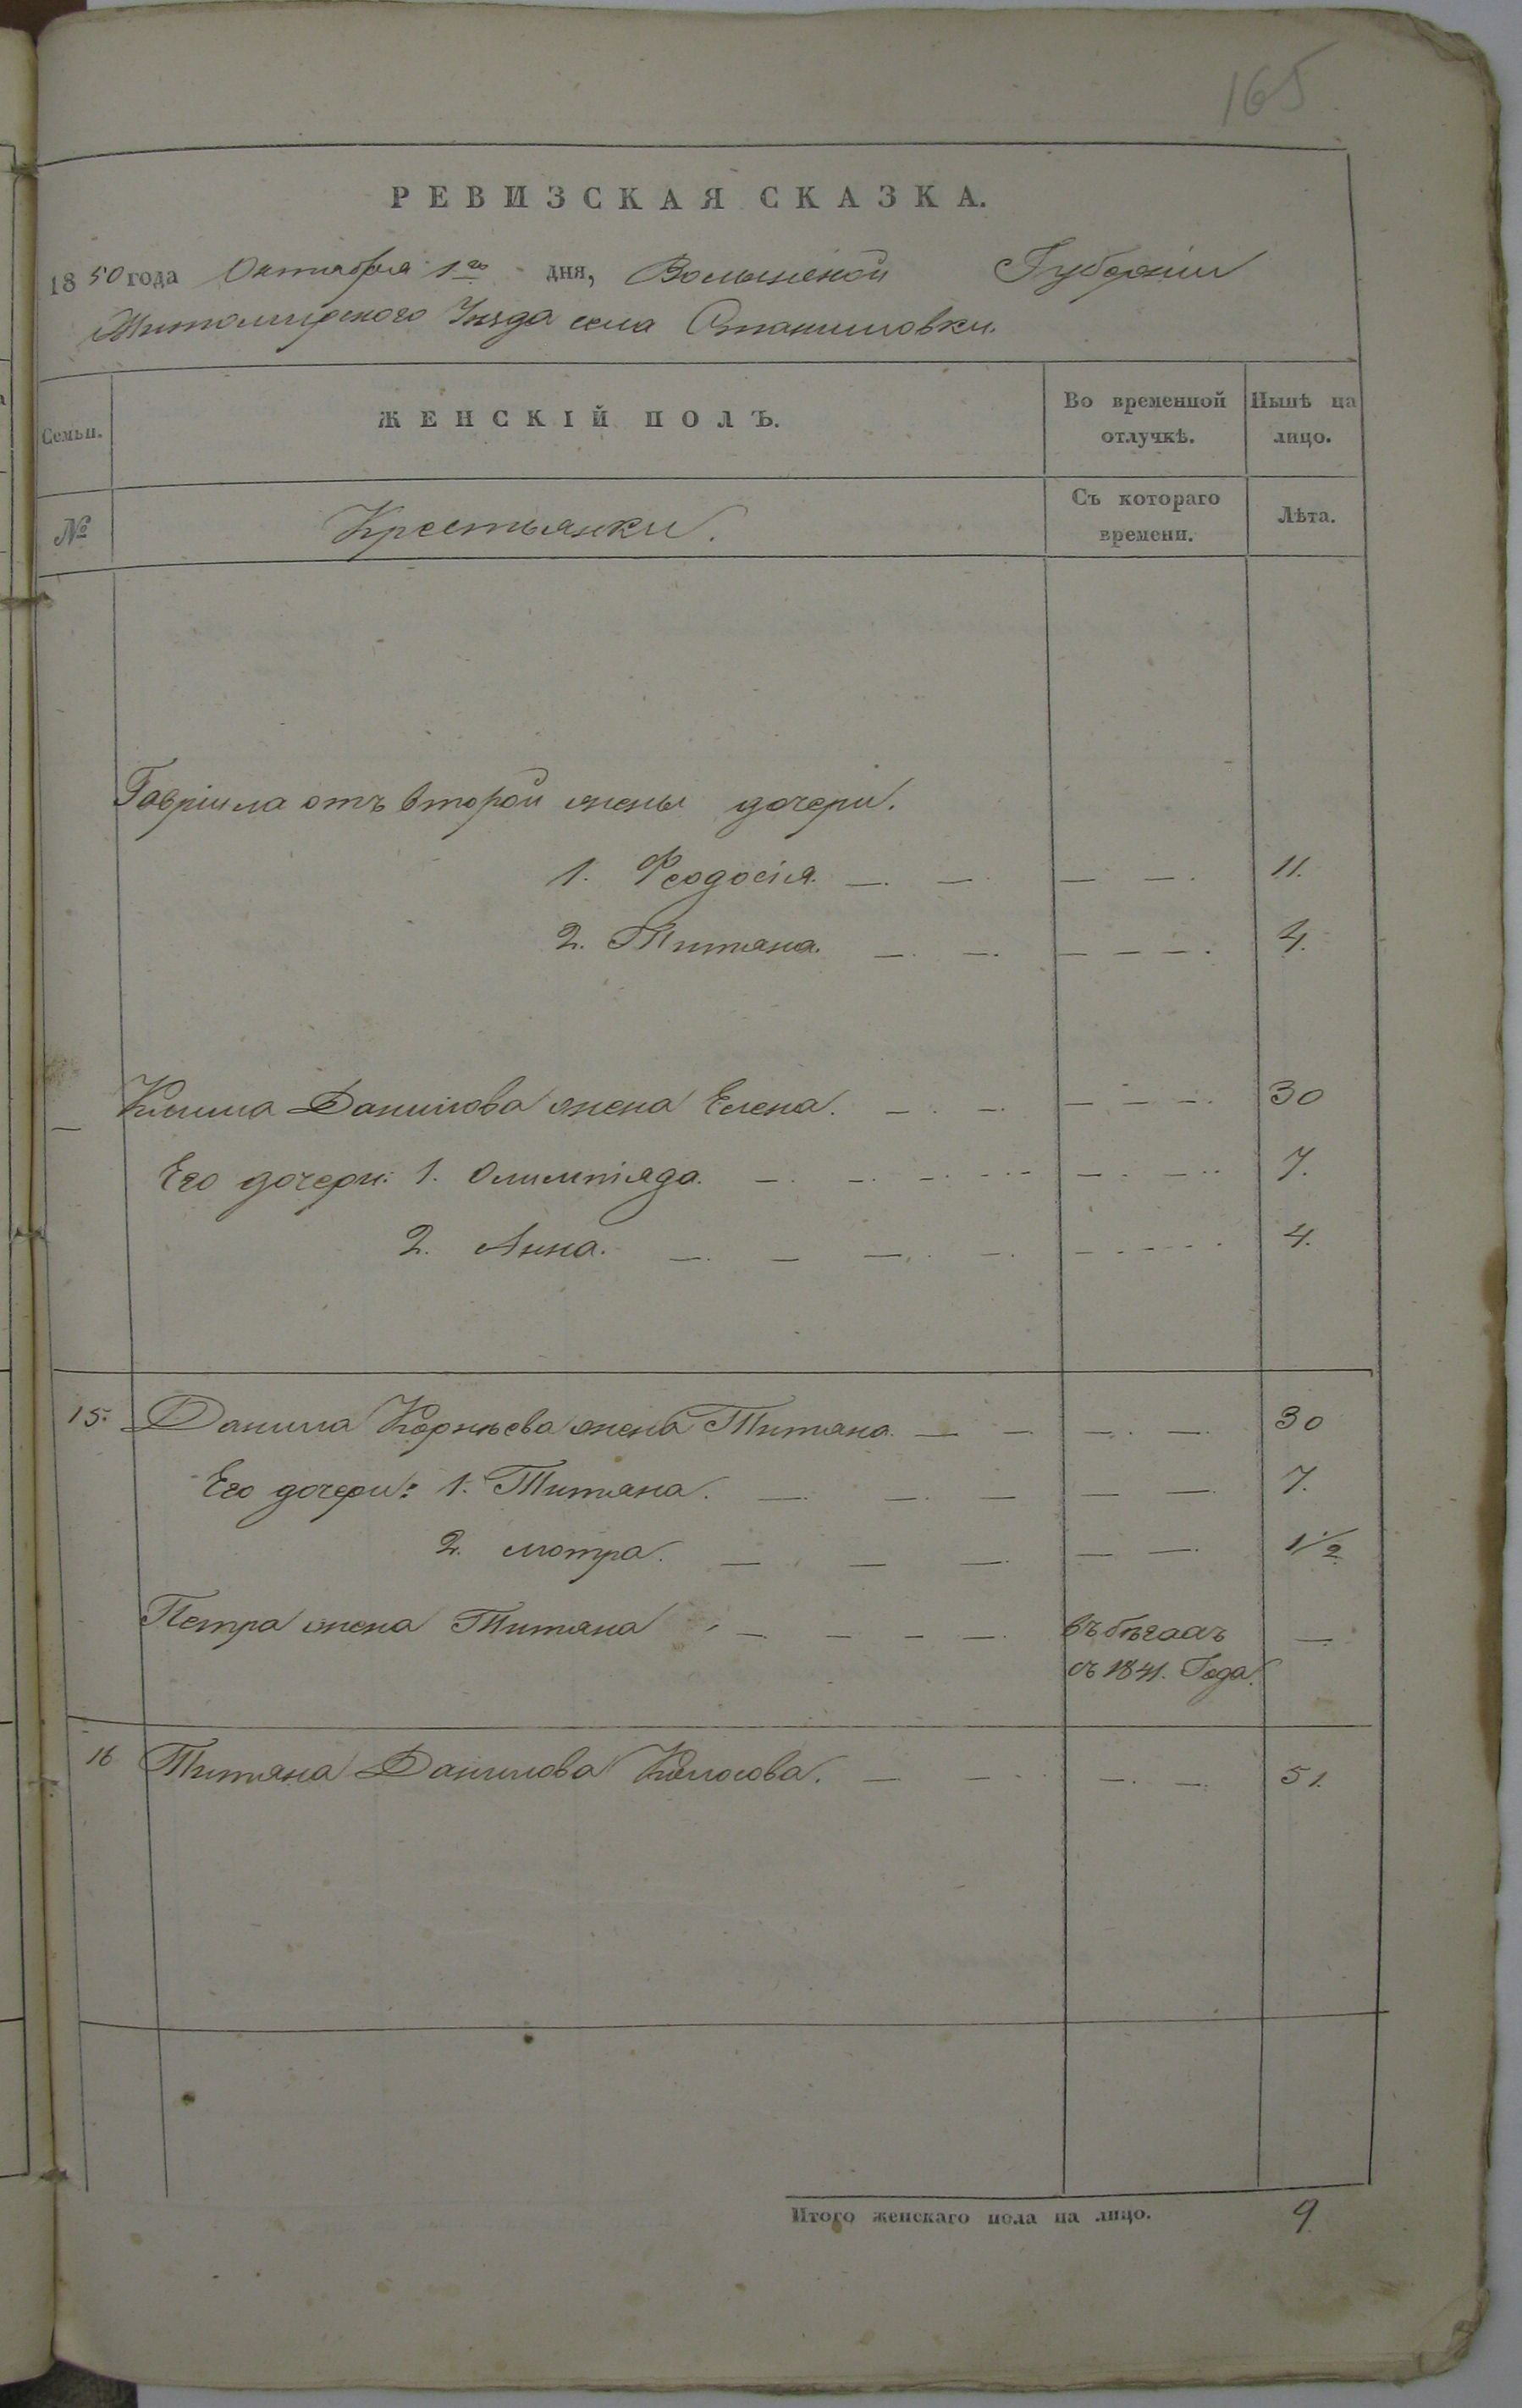 165
РЕВИЗСКАЯ СКАЗКА.
1850 года Октября 1го дня, Волынской Губерніи
Житомирского Уезда села Станишовки.
Семьи. ЖЕНСКІЙ ПОЛЪ. Во временной отлучкѣ. Нынѣ на лицо.
№ Крестьянки. Съ котораго времени. Лѣта.
Гавріила отъ второй жены дочери.
1. Феодосія. 11.
2. Титяна. 4.
Клима Данилова жена Елена. 30
Его дочери: 1. Олимпіяда. 7.
2. Анна. 4.
15. Данила Корнѣева жена Титяна. 30
Его дочери: 1. Титяна. 7.
2. мотра. 1 1/2
Петра жена Титяна въ бѣгахъ —
съ 1841. Года.
16 Титяна Данилова 51.
Итого женскаго пола на лицо. 9